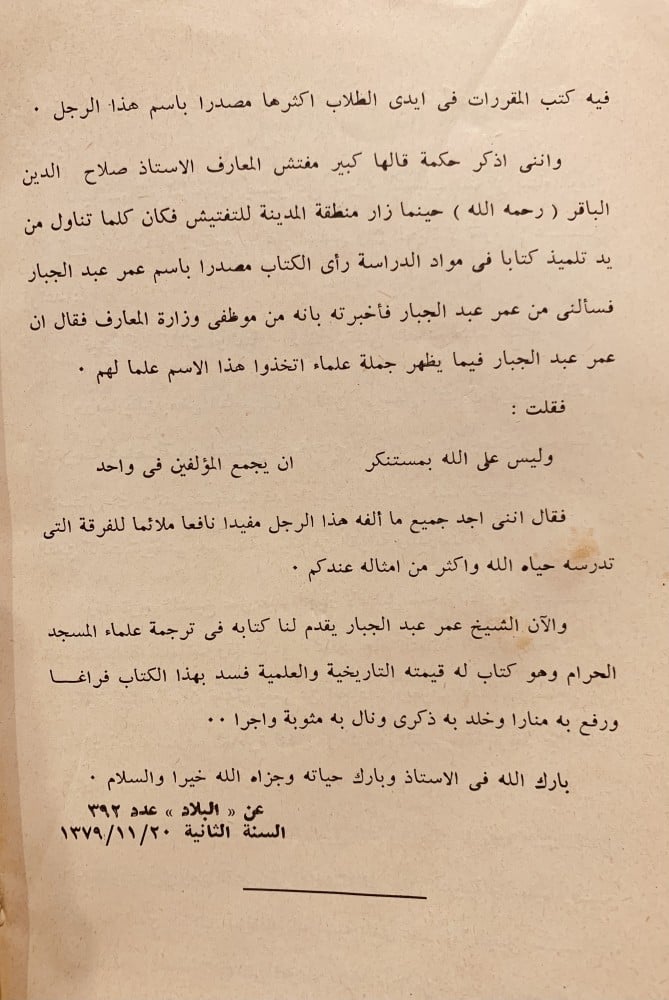 فيه كتب المقررات فى ايدى الطلاب اكثرها مصدرا باسم هذا الرجل ٠
واننى اذكر حكمة قالها كبير مفتش المعارف الاستاذ صلاح الدين
الباقر ( رحمه الله ) حينما زار منطقة المدينة للتفتيش فكان كلما تناول من
يد تلميذ كتابا فى مواد الدراسة رأى الكتاب مصدرا باسم عمر عبد الجبار
فسألنى من عمر عبد الجبار فأخبرته بانه من موظفى وزارة المعارف فقال ان
عمر عبد الجبار فيما يظهر جملة علماء اتخذوا هذا الاسم علما لهم ٠
فقلت :
وليس على الله بمستنكر ان يجمع المؤلفين فى واحد
فقال اننى اجد جميع ما ألفه هذا الرجل مفيدا نافعا ملائما للفرقة التى
تدرسه حياه الله واكثر من امثاله عندكم ٠
والآن الشيخ عمر عبد الجبار يقدم لنا كتابه فى ترجمة علماء المسجد
الحرام وهو كتاب له قيمته التاريخية والعلمية فسد بهذا الكتاب فراغـــا
ورفع به منارا وخلد به ذكرى ونال به مثوبة واجرا ٠٠
بارك الله فى الاستاذ وبارك حياته وجزاه الله خيرا والسلام ٠
عن « البلاد » عدد ٣٩٢
السنة الثانية ١٣٧٩/١١/٢٠